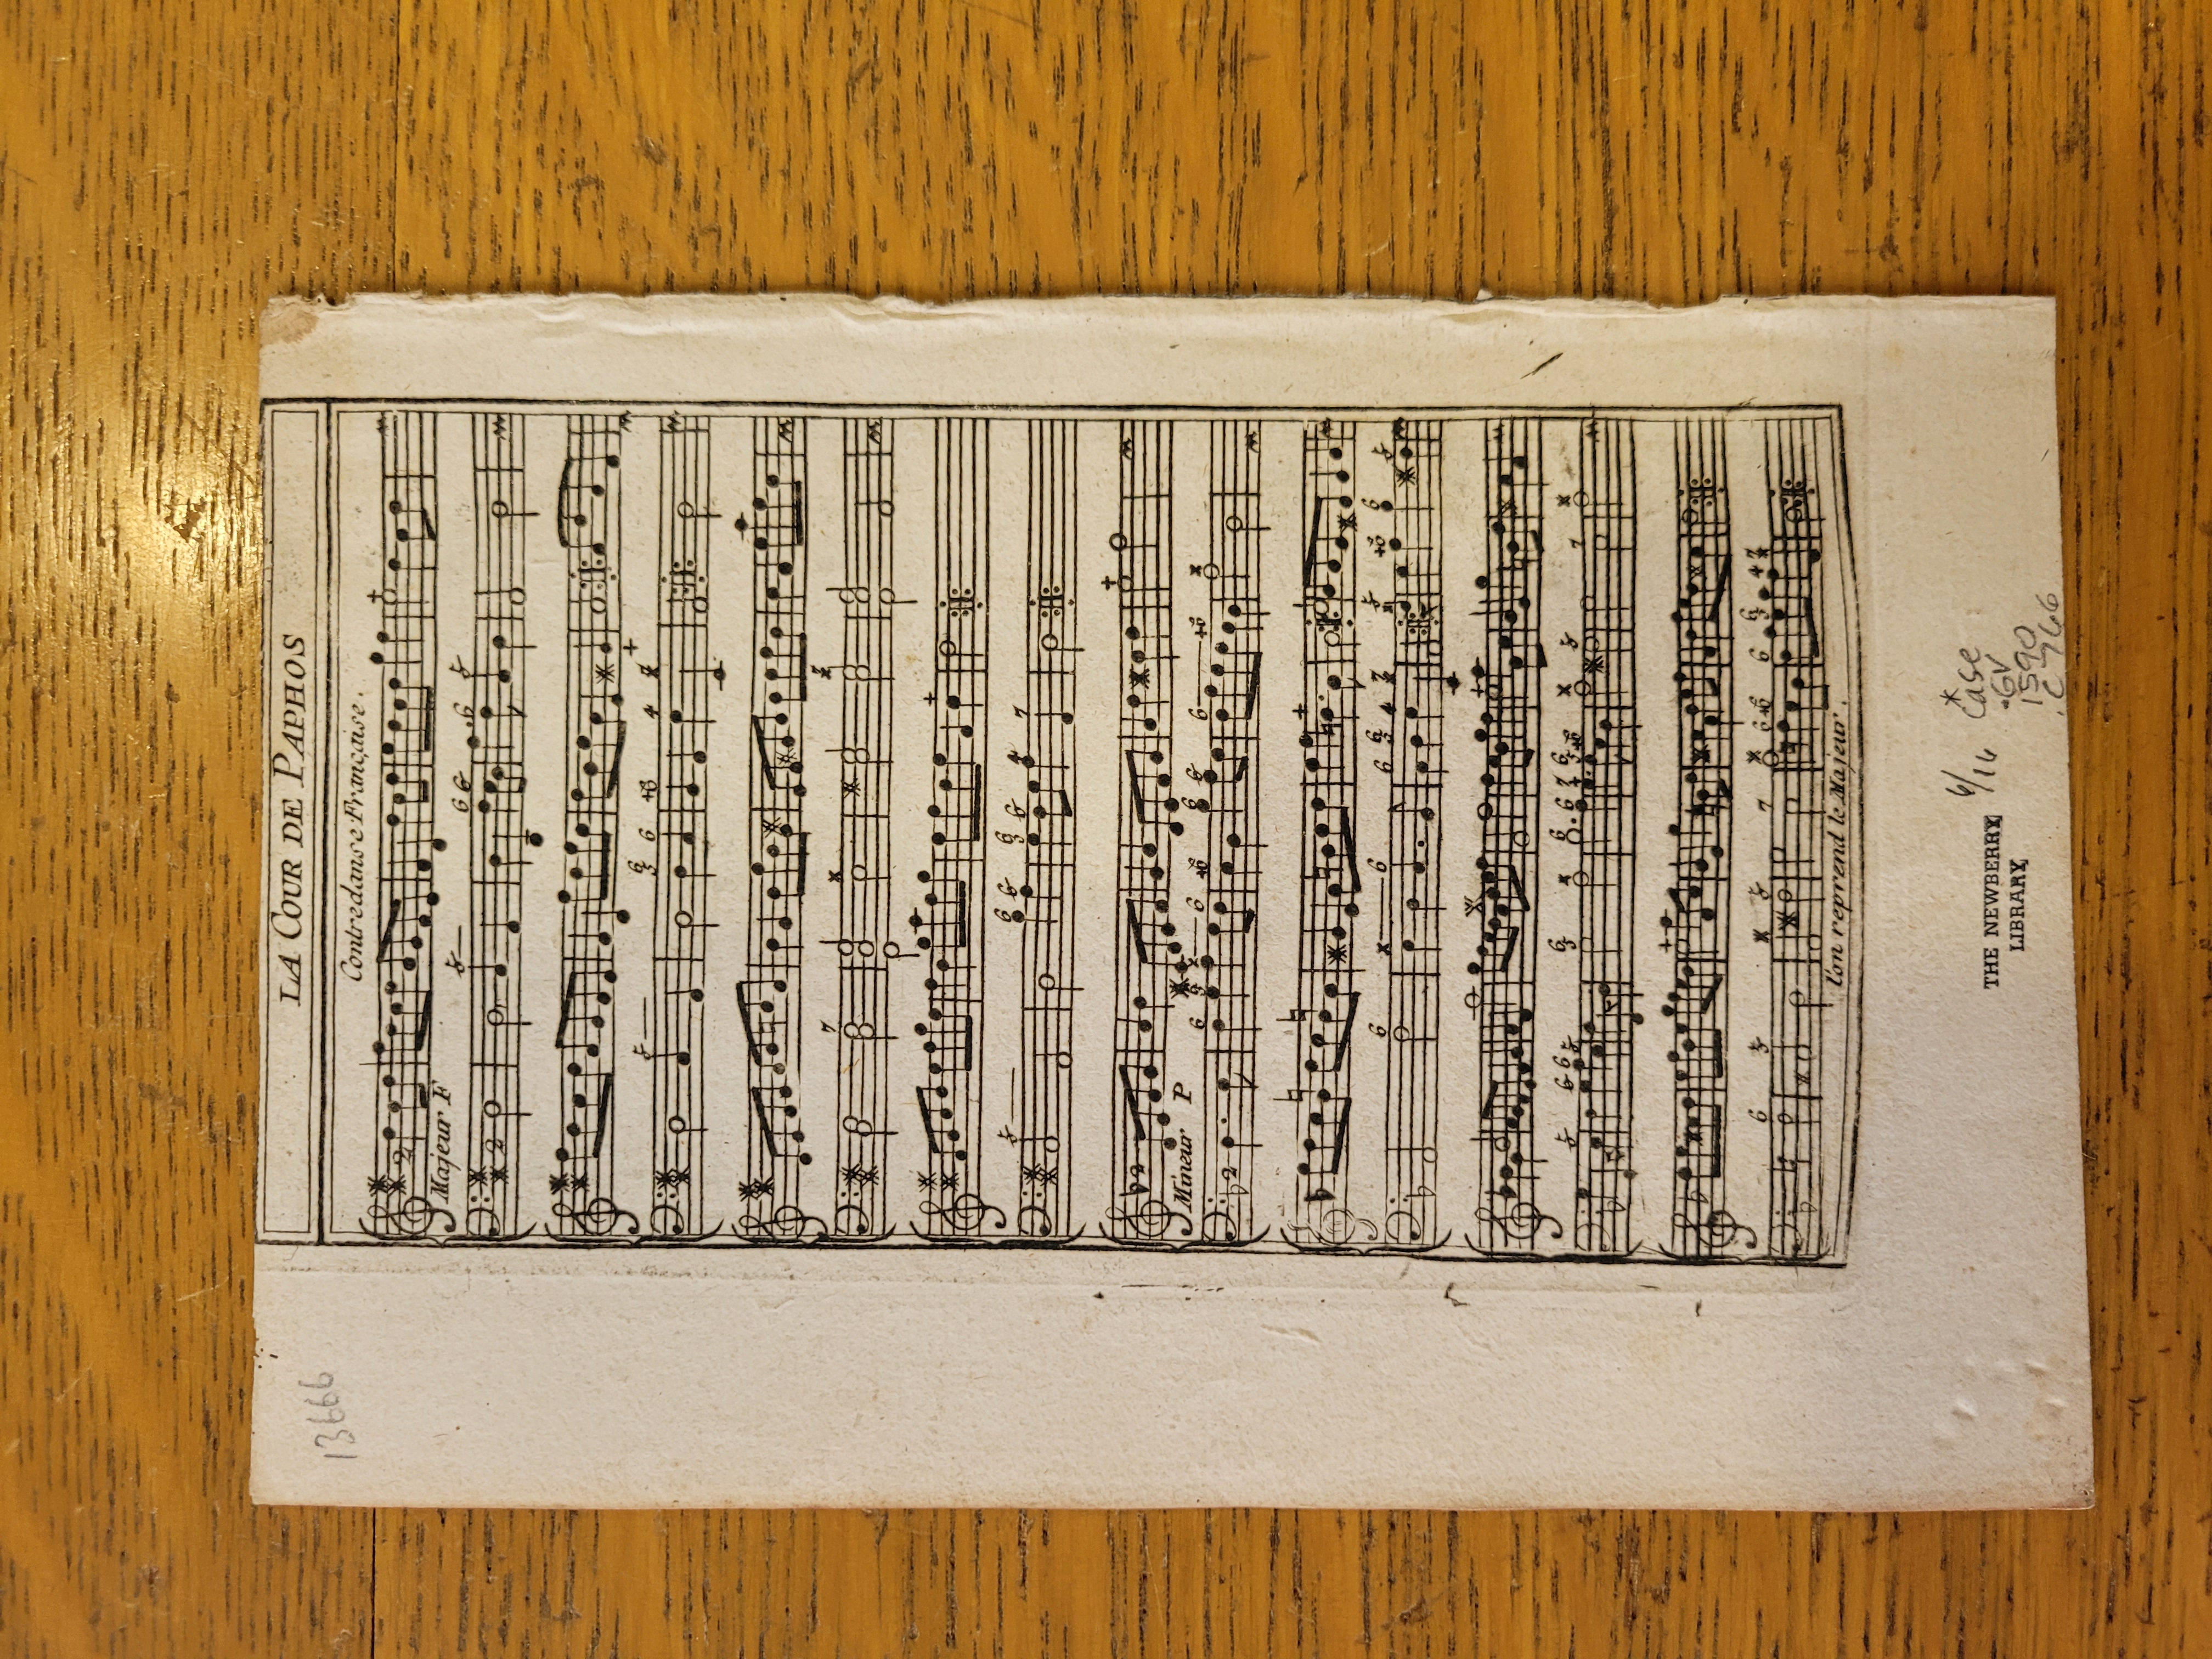 LA COUR DE PAPHOS
Contredanse Française.
Majeur F
Mineur P
l'on reprend le Majeur.
THE NEWBERRY
LIBRARY
6/14
*
Case
GV
1590
.C766
13666